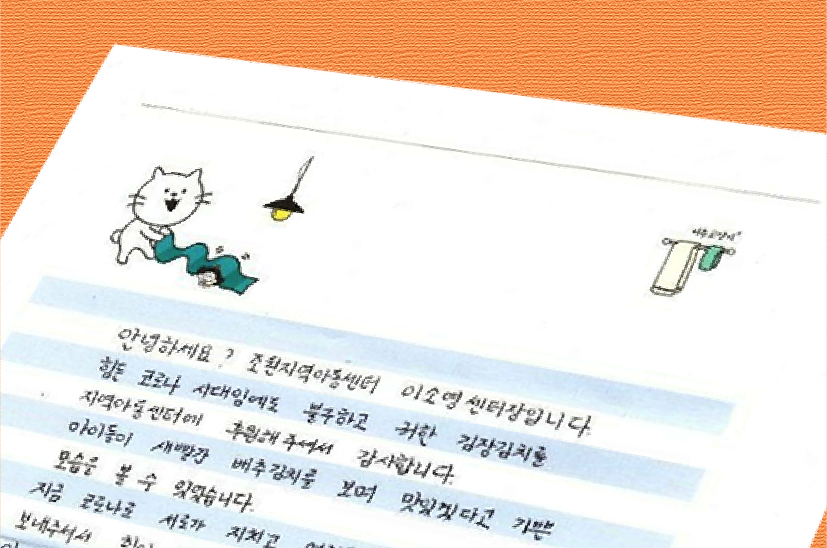 안녕하세요? 조원지역아동센터 이소영센터장입니다.
힘든 코로나 시대임에도 불구하고 귀한 김장김치를
지역아동센터에 후원해주셔서 감사합니다.
아이들이 새빨간 배추김치를 보며 맛있겠다고 기쁜
모습을 볼 수 있었습니다.
지금 코로나로 서로가 지치고
보내주셔서